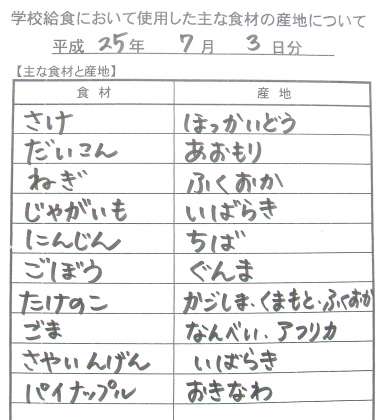 学校給食において使用した主な食材の産地について
平成 25年 7月 3日分
【主な食材と産地】
食材 産地
さけ ほっかいどう
だいこん あおもり
ねぎ ふくおか
じゃがいも いばらき
にんじん ちば
ごぼう ぐんま
たけのこ かごしま、くまもと、ふくおか
ごま なんべい、アフリカ
さやいんげん いばらき
パイナップル おきなわ